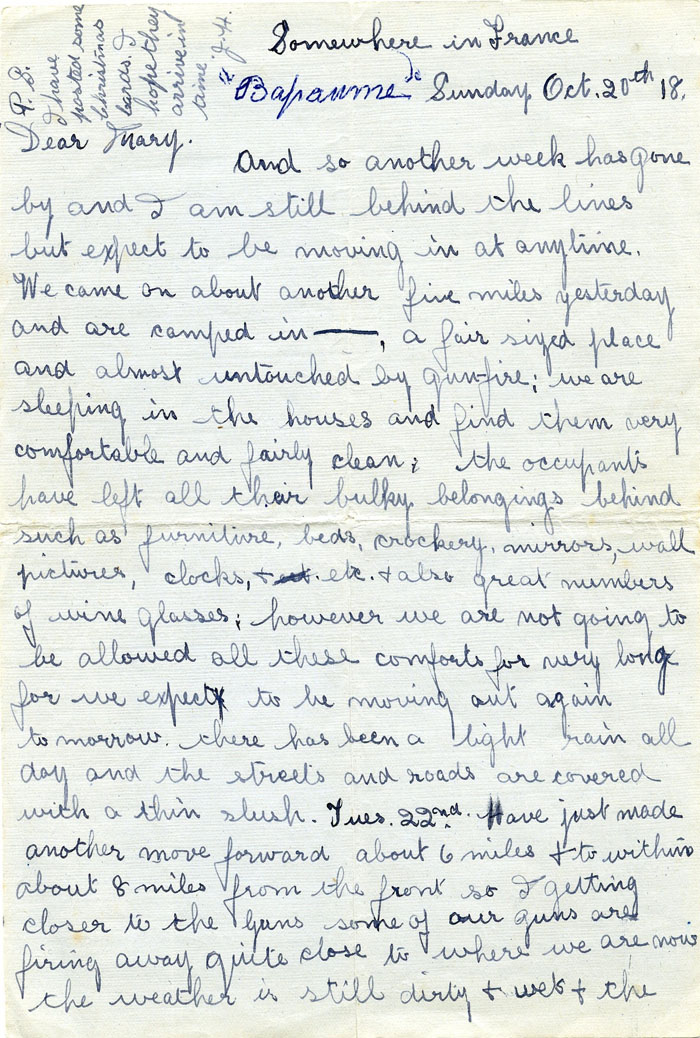 P.S.
I have
posted some
Christmas
cards. I
hope they
arrive in
time. J.H.
Somewhere in France
"Bapaume" Sunday Oct. 20th 18.
Dear Mary.
And so another week has gone
by and I am still behind the lines
but expect to be moving in at anytime.
We came on about another five miles yesterday
and are camped in ——, a fair sized place
and almost untouched by gunfire; we are
sleeping in the houses and find them very
comfortable and fairly clean; the occupants
have left all their bulky belongings behind
such as furniture, beds, crockery, mirrors, wall
pictures, clocks, + etc. + also great numbers
of wine glasses; however we are not going to
be allowed all these comforts for very long
for we expect to be moving out again
to morrow. there has been a light rain all
day and the streets and roads are covered
with a thin slush. Tues. 22nd. Have just made
another move forward about 6 miles + to within
about 8 miles from the front so I getting
closer to the guns some of our guns are
firing away quite close to where we are now
the weather is still dirty + wet + the